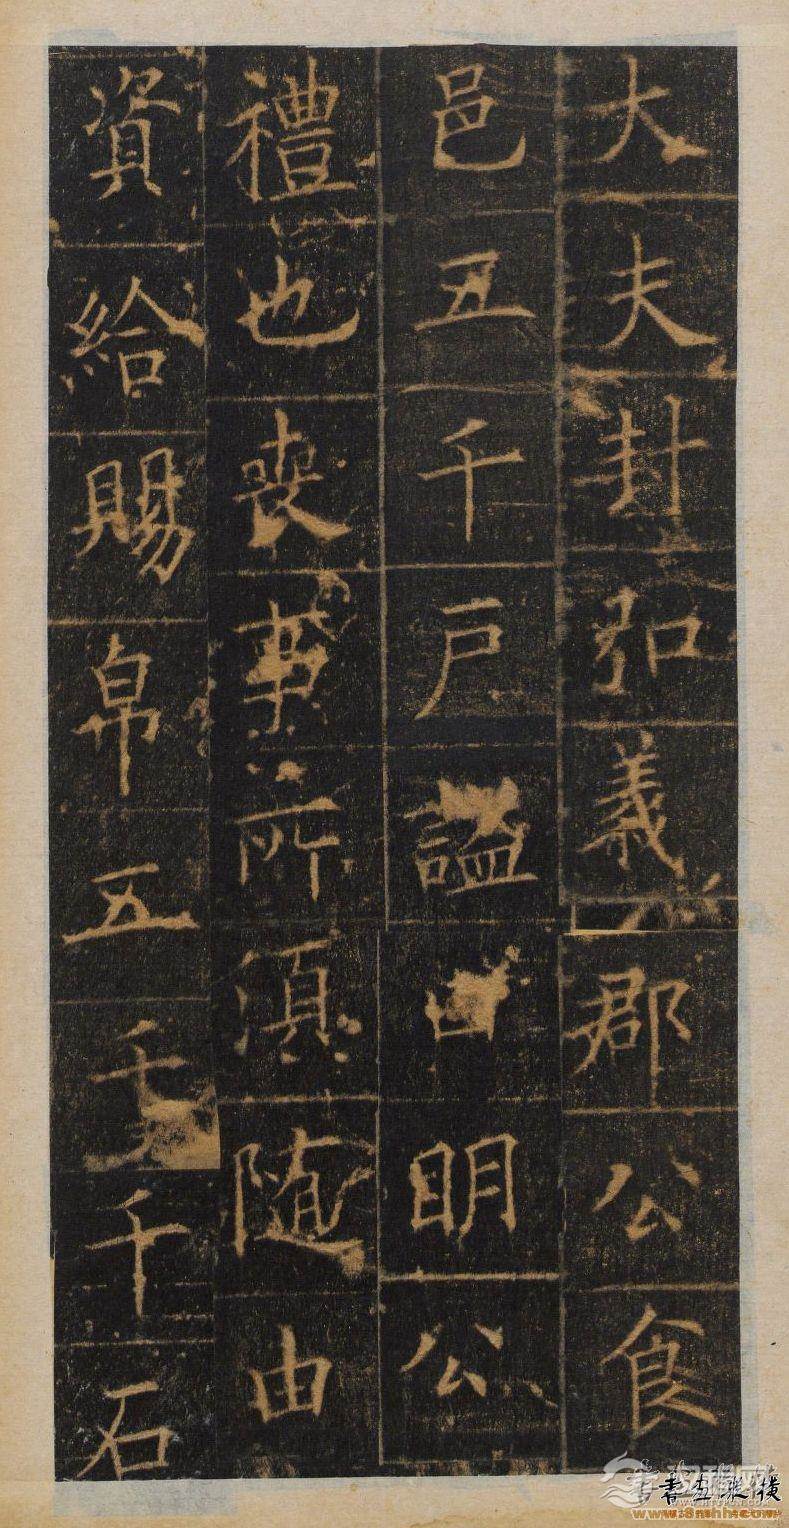 大夫封弘義郡公食
邑五千戶謚曰明公
禮也喪事所須隨由
資給賜帛五千千石
www.8mhh.com